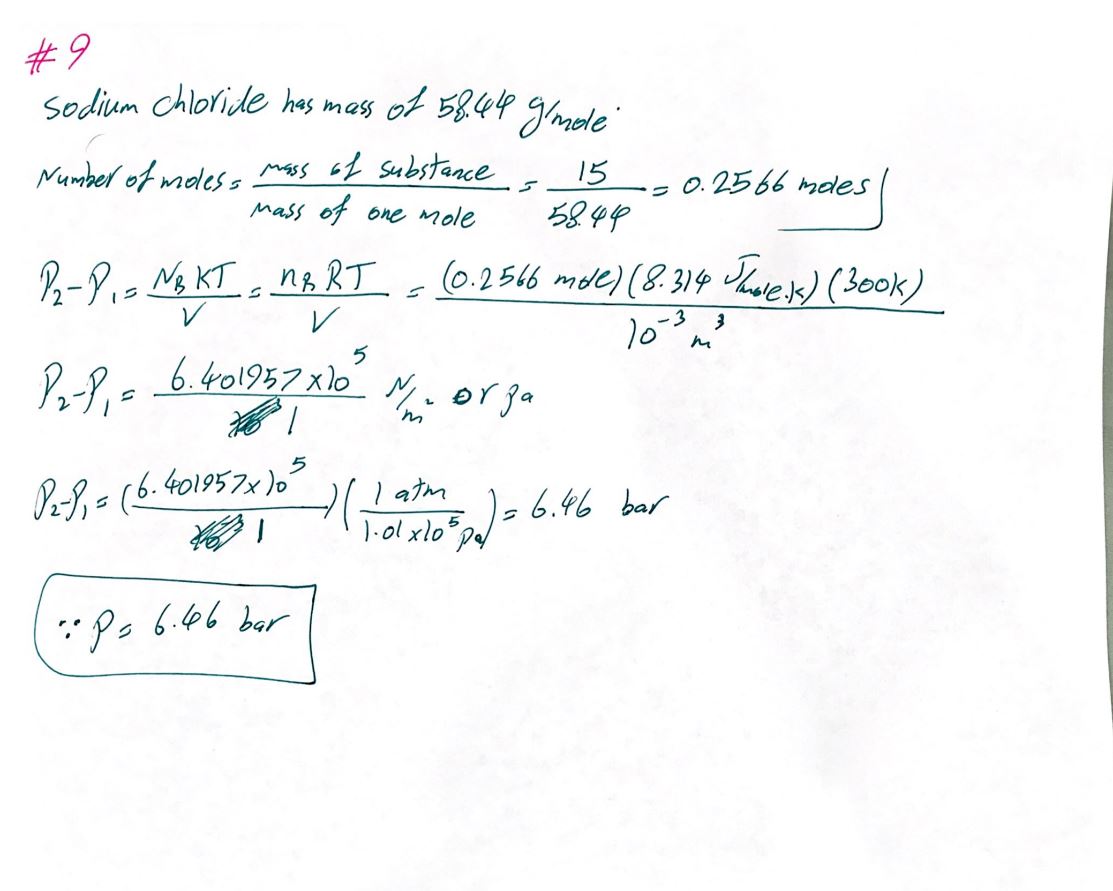 #9
Sodium chloride has mass of 58.44 g/mole
Number of moles = mass of substance / mass of one mole = 15 / 58.44 = 0.2566 moles
P₂-P₁ = N_B KT / V = n_B RT / V = (0.2566 mole)(8.314 J/mole.k)(300k) / 10⁻³ m³
P₂-P₁ = 6.401957 x10⁵ / 1 N/m² or Pa
P₂-P₁ = (6.401957x10⁵ / 1)(1 atm / 1.01 x10⁵ Pa) = 6.46 bar
∵ P = 6.46 bar